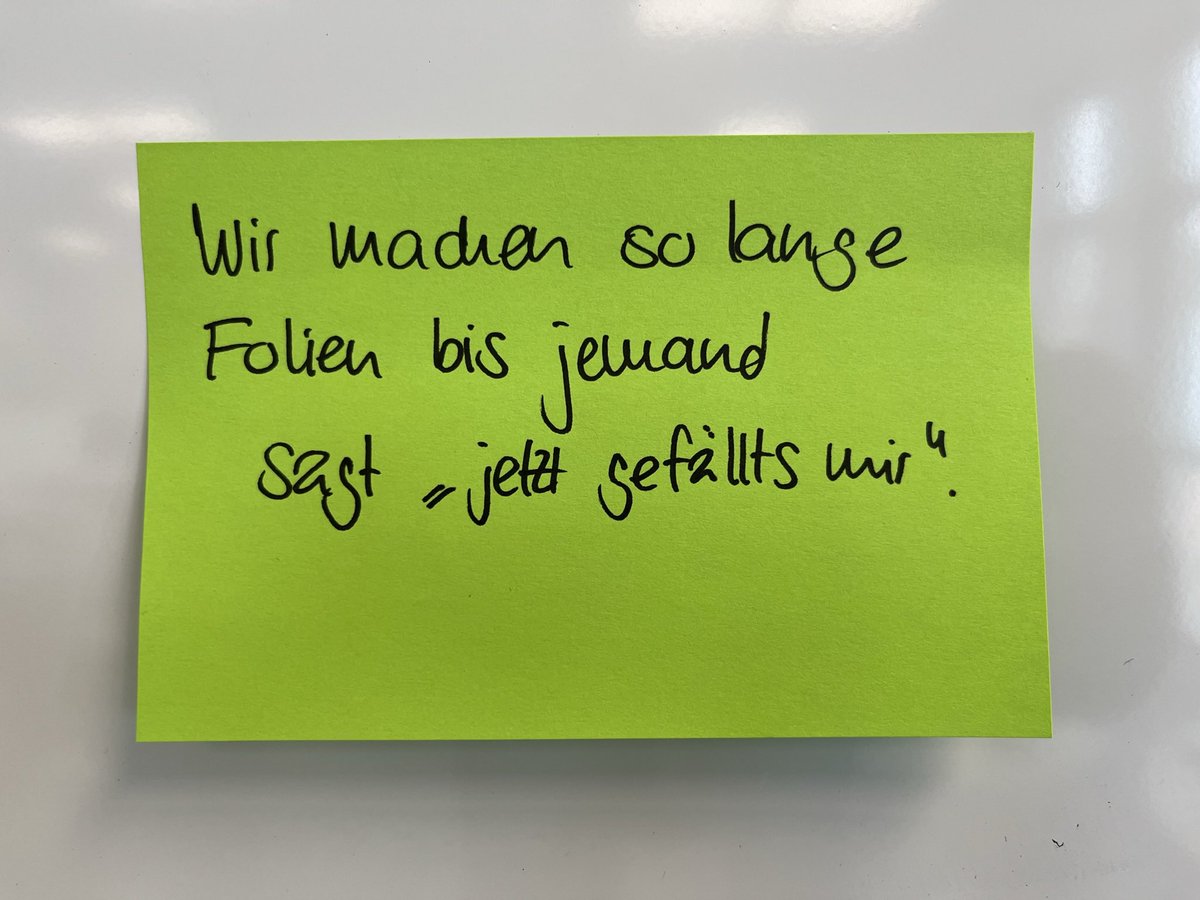 Wir machen so lange
Folien bis jemand
sagt „jetzt gefällts mir“.